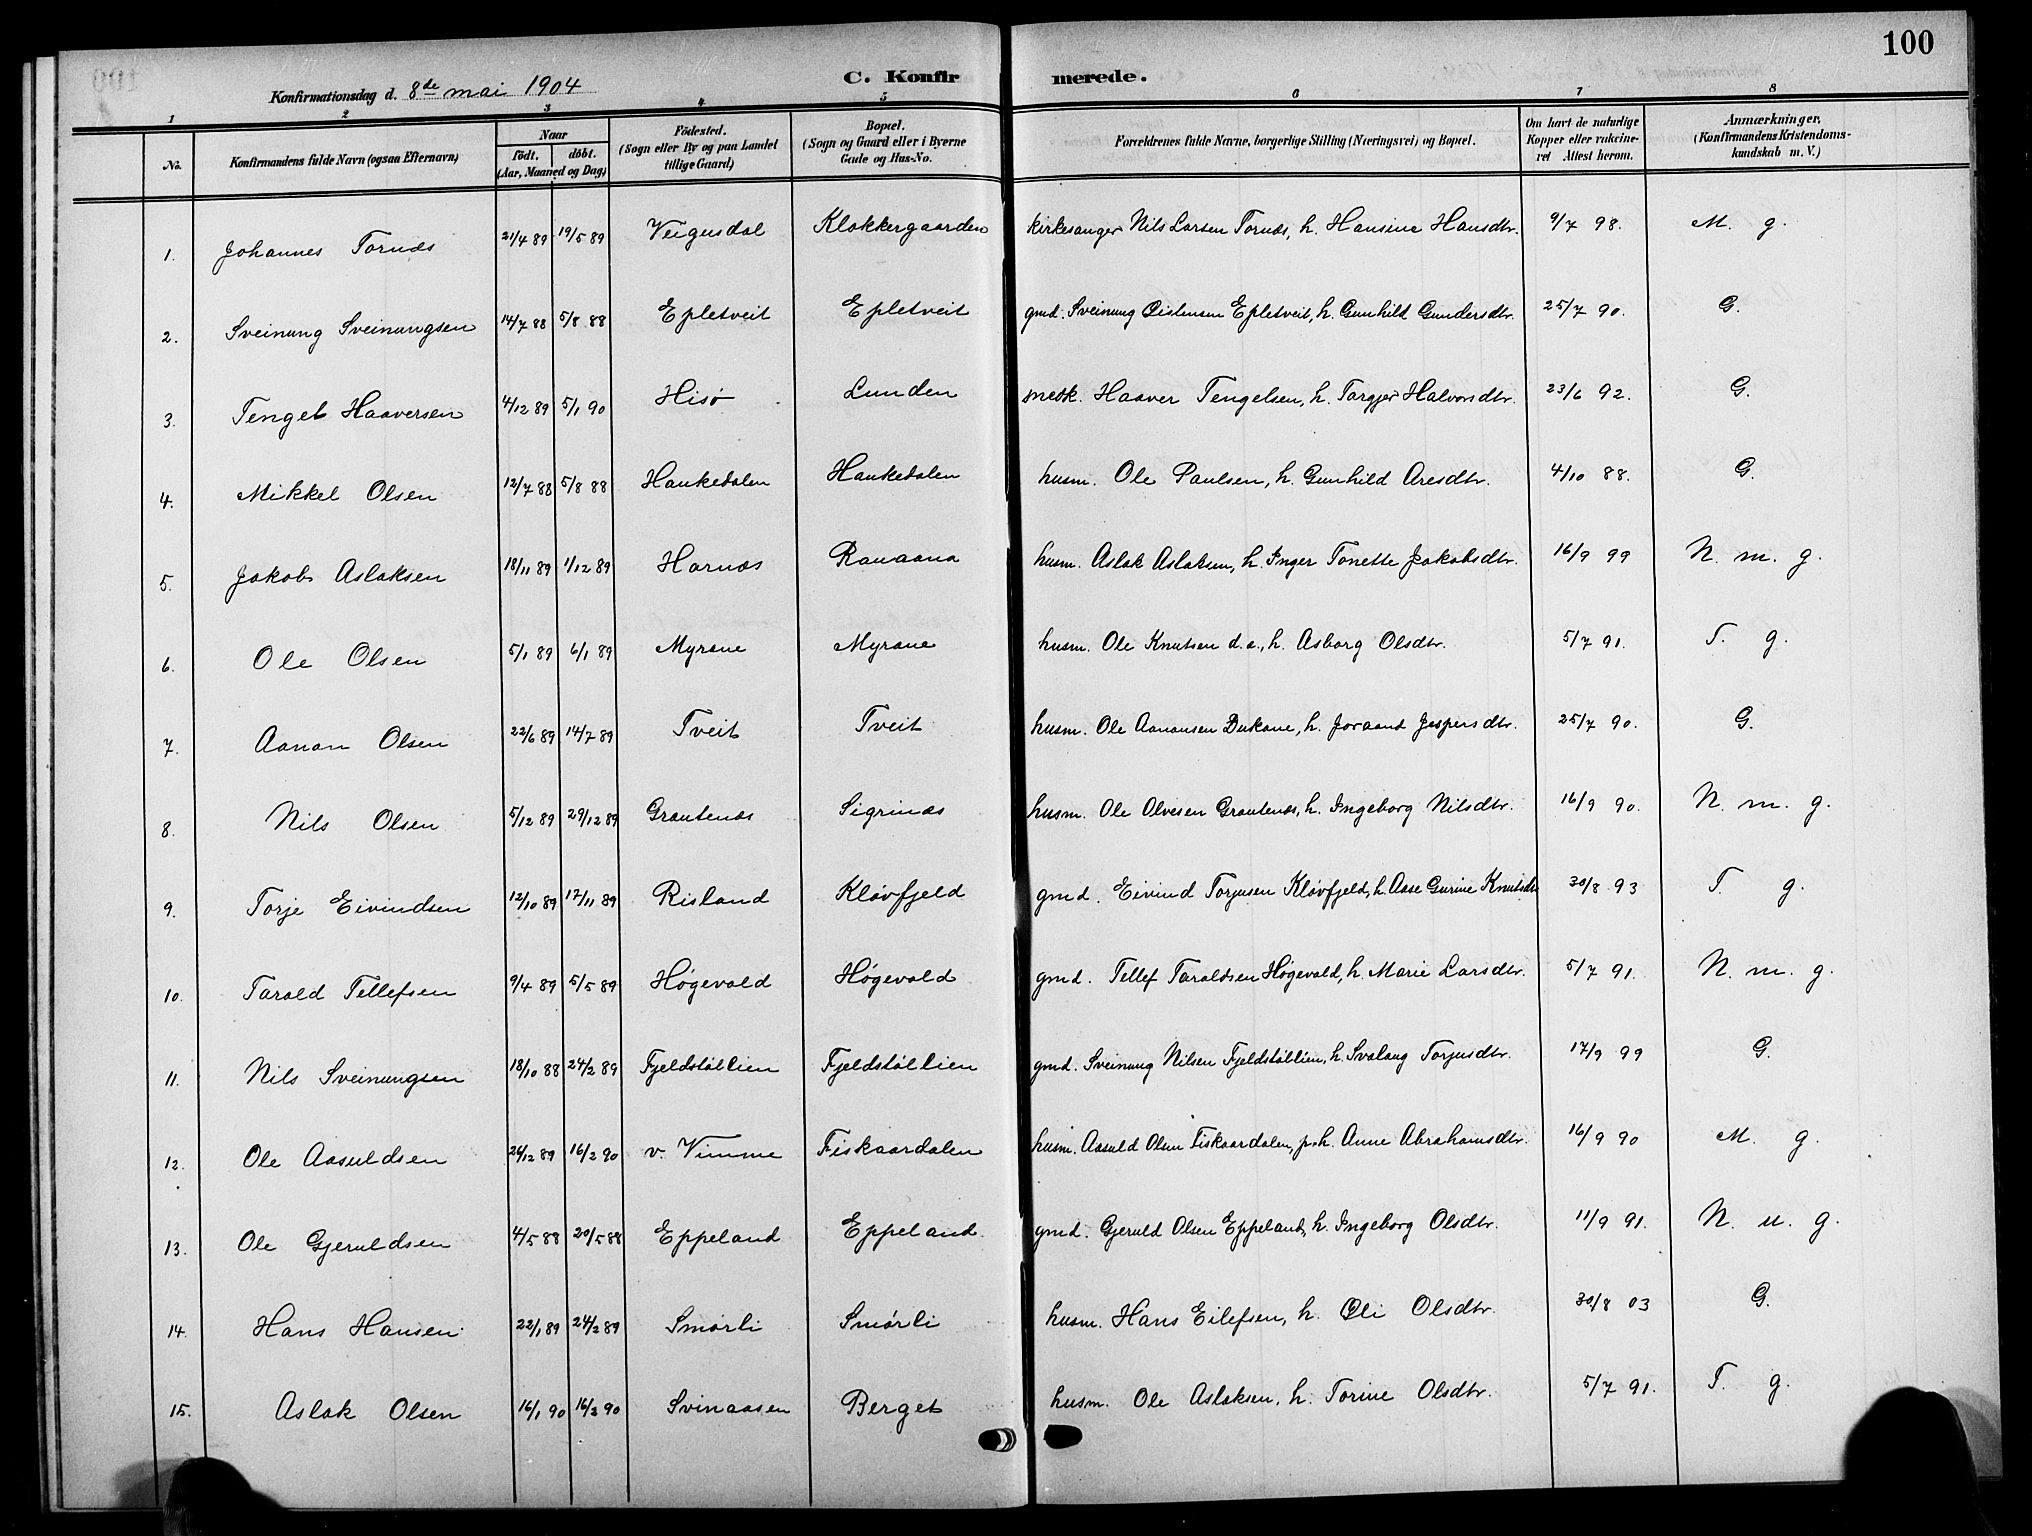 100
Konfirmationsdag d. 8de mai 1904
C. Konfirmerede.
1 2 3 4 5 6 7 8
No. Konfirmandens fulde Navn (ogsaa Efternavn) Naar født. døbt. (Aar, Maaned og Dag) Fødested. (Sogn eller By og paa Landet tillige Gaard) Bopæl. (Sogn og Gaard eller i Byerne Gade og Hus-No. Forældrenes fulde Navne, borgerlige Stilling (Næringsvei) og Bopæl. Om havt de naturlige Kopper eller vakcineret Attest herom. Anmærkninger. (Konfirmandens Kristendomskundskab m. V.)
1. Johannes Tornæs 21/4 89 19/5 89 Veigusdal Klokkergaarden kirkesanger Nils Larsen Tornæs, h. Hansine Hansdtr. 9/7 98. M. g.
2. Sveinung Sveinungsen 14/7 88 5/8 88 Epletveit Epletveit gmd. Sveinung Øistensen Epletveit, h. Gunhild Gundersdtr. 25/7 90. G.
3. Tengel Haaversen 4/12 89 5/1 90 Hisø Lunden snedk. Haaver Tengelsen, h. Targjer Halvorsdtr. 23/6 92. G.
4. Mikkel Olsen 12/7 88 5/8 88 Haukedalen Haukedalen husm. Ole Paulsen, h. Gunhild Aresdtr. 4/10 88. G.
5. Jakob Aslaksen 18/11 89 1/12 89 Hornæs Ranaana husm. Aslak Aslaksen, h. Inger Tonette Jakobsdtr. 16/9 99 N. m. g.
6. Ole Olsen 5/1 89 6/1 89 Myrane Myrane husm. Ole Knutsen d.e., h. Asborg Olsdtr. 5/7 91. T. g.
7. Aanon Olsen 22/6 89 14/7 89 Tveit Tveit husm. Ole Aanonsen Dukane, h. Joraand Jespersdtr. 25/7 90. G.
8. Nils Olsen 5/12 89 29/12 89 Grautenæs Sigrinæs husm. Ole Olvesen Grautenæs, h. Ingeborg Nilsdtr. 16/9 90. N. m. g.
9. Torje Eivindsen 12/10 89 17/11 89 Risland Kløvfjeld gmd. Eivind Torjusen Kløvfjeld, h. Aase Gurine Knutsdtr 30/8 93 T. g.
10. Tarald Tellefsen 9/4 89 5/5 89 Høgevold Høgevold gmd. Tellef Taraldsen Høgevold, h. Marie Larsdtr. 5/7 91. N. m. g.
11. Nils Sveinungsen 18/10 88 24/2 89 Fjeldstøllien Fjeldstøllien gmd. Sveinung Nilsen Fjeldstøllien, h. Svalaug Torjusdtr. 17/9 99 G.
12. Ole Aasuldsen 26/12 89 16/2 90 v. Vimme Fiskaardalen husm. Aasuld Olsen Fiskaardalen, p.h. Anne Abrahamsdtr. 16/9 90 M. g.
13. Ole Gjeruldsen 4/5 88 20/5 88 Eppeland Eppeland. gmd. Gjeruld Olsen Eppeland, h. Ingeborg Olsdtr. 11/9 91. N. u. g.
14. Hans Hansen 22/1 89 24/2 89 Smørli Smørli husm. Hans Eilefsen, h. Oli Olsdtr. 30/8 03 G.
15. Aslak Olsen 16/1 90 16/2 90 Svinaasen Berget husm. Ole Aslaksen, h. Torine Olsdtr. 5/7 91. T. g.